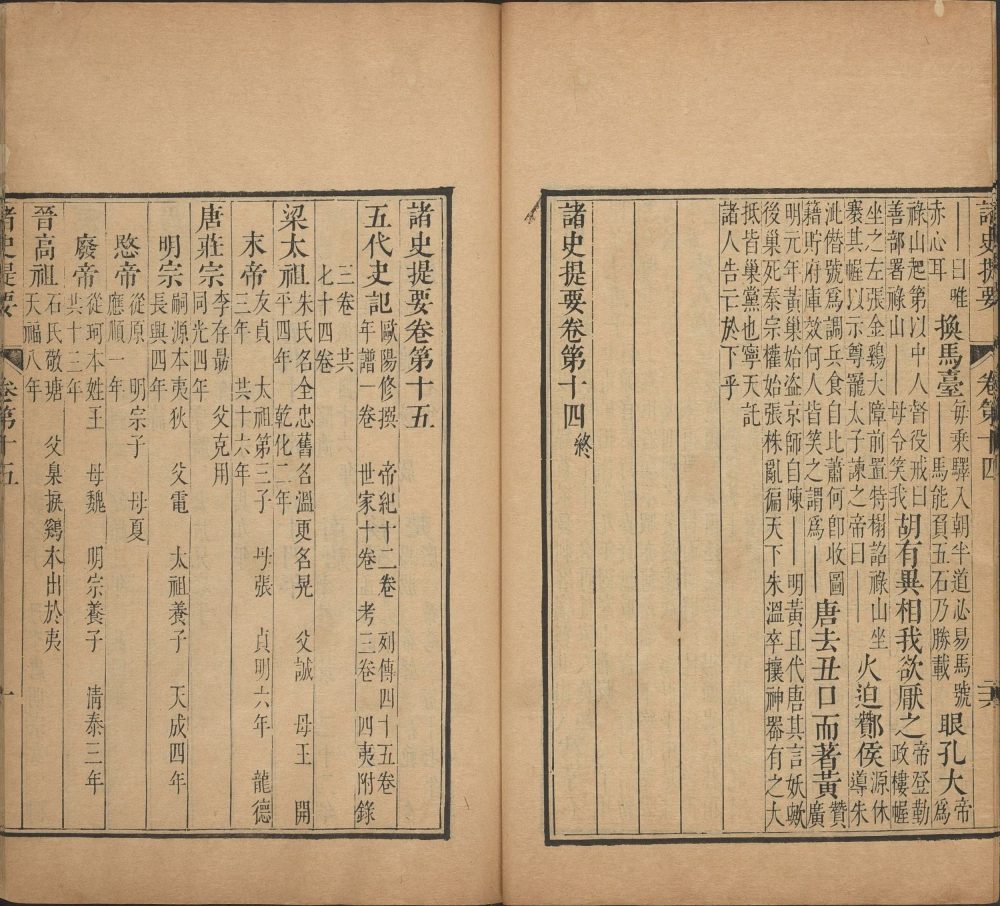 諸史提要 卷第十四
——曰唯赤心耳 換馬臺 每乘驛入朝半道必易馬號——馬能負五石乃勝載 眼孔大 帝爲
祿山起第以中人督役戒曰善部署祿山——母令笑我 胡有異相我欲厭之 帝登勤政樓幄
坐之左張金鷄大障前置特榻詔祿山坐褰其幄以示尊寵太子諫之帝曰—— 火迫酇侯 源休導朱
泚僣號爲調兵食自比蕭何卽收圖籍貯府庫效何人皆笑之謂爲—— 唐去丑口而著黃 贊廣
明元年黃巢始盜京師自陳——明黃且代唐其言妖歟後巢死秦宗權始張株亂徧天下朱溫卒攘神器有之大
抵皆巢黨也寧天託諸人告亡於下乎
諸史提要卷第十四 終
諸史提要卷第十五
五代史記 歐陽修撰 帝紀十二卷 列傳四十五卷 年譜一卷 世家十卷 考三卷 四夷附錄
三卷 共七十四卷
梁太祖 朱氏名全忠舊名溫更名晃 父誠 母王 開平四年 乾化二年
末帝 友貞 太祖第三子 母張 貞明六年 龍德三年 共十六年
唐莊宗 李存勗 父克用 同光四年
明宗 嗣源本夷狄 父電 太祖養子 天成四年 長興四年
愍帝 從原 明宗子 母夏 應順一年
廢帝 從珂本姓王 母魏 明宗養子 淸泰三年 共十三年
晉高祖 石氏敬瑭 父臬捩鷄本出於夷 天福八年
諸史提要 卷第十五 一